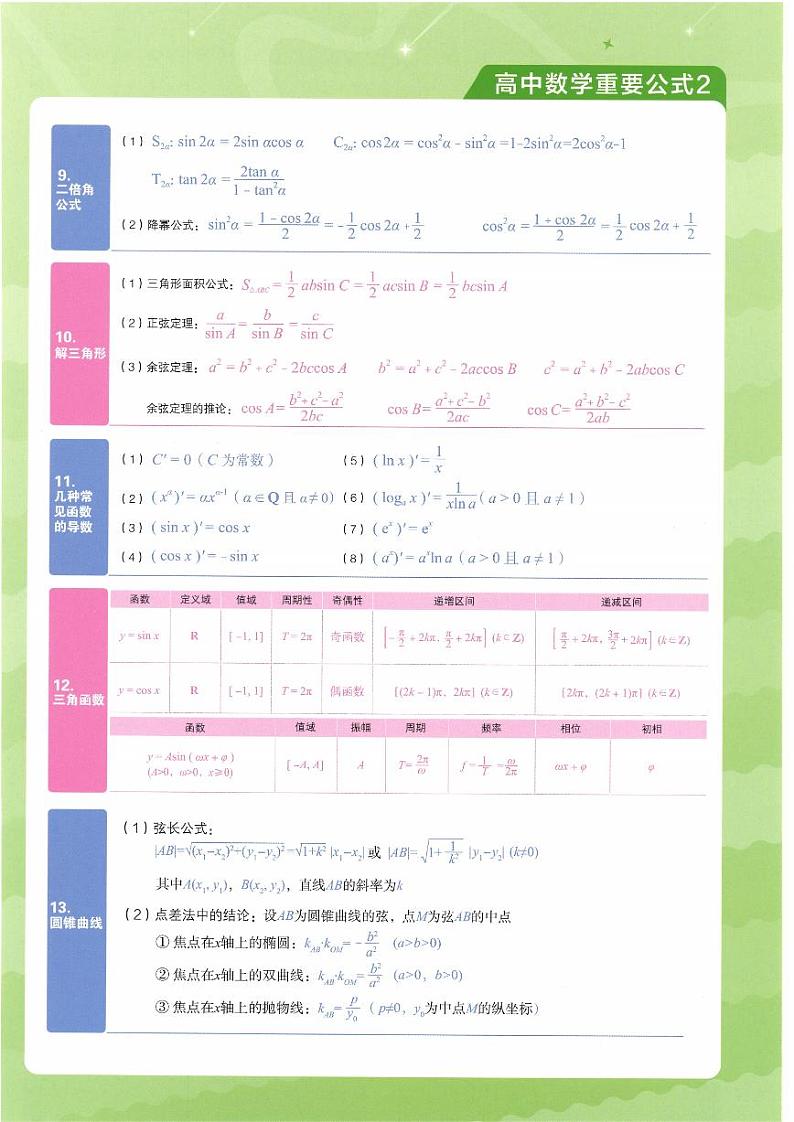 高中数学重要公式2
9.
二倍角
公式
(1) S₂α: sin 2α = 2sin αcos α C₂α: cos 2α = cos²α - sin²α =1-2sin²α=2cos²α-1
T₂α: tan 2α = 2tan α / (1 - tan²α)
(2) 降幂公式: sin²α = (1 - cos 2α)/2 = -1/2 cos 2α + 1/2 cos²α = (1 + cos 2α)/2 = 1/2 cos 2α + 1/2
10.
解三角形
(1) 三角形面积公式: S△ABC = 1/2 absin C = 1/2 acsin B = 1/2 bcsin A
(2) 正弦定理: a/sin A = b/sin B = c/sin C
(3) 余弦定理: a² = b² + c² - 2bccos A b² = a² + c² - 2accos B c² = a² + b² - 2abcos C
余弦定理的推论: cos A= (b²+c²-a²)/2bc cos B= (a²+c²-b²)/2ac cos C= (a²+b²-c²)/2ab
11.
几种常
见函数
的导数
(1) C′ = 0 ( C 为常数 ) (5) ( ln x )′ = 1/x
(2) ( xᵅ )′ = αxᵅ⁻¹ ( α ∈ Q 且 α ≠ 0) (6) ( logₐ x )′ = 1/(xln a) ( a > 0 且 a ≠ 1 )
(3) ( sin x )′ = cos x (7) ( eˣ )′ = eˣ
(4) ( cos x )′ = - sin x (8) ( aˣ)′ = aˣln a ( a > 0 且 a ≠ 1 )
12.
三角函数
函数 定义域 值域 周期性 奇偶性 递增区间 递减区间
y = sin x R [ -1, 1] T = 2π 奇函数 [-π/2 + 2kπ, π/2 + 2kπ] (k∈Z) [π/2 + 2kπ, 3π/2 + 2kπ] (k∈Z)
y = cos x R [ -1, 1] T = 2π 偶函数 [(2k - 1)π, 2kπ] (k∈Z) [2kπ, (2k + 1)π] (k∈Z)
函数 值域 振幅 周期 频率 相位 初相
y = Asin ( ωx + φ )
(A>0, ω>0, x≥0) [ -A, A] A T= 2π/ω f = 1/T = ω/2π ωx + φ φ
13.
圆锥曲线
(1) 弦长公式:
|AB|=√((x₁-x₂)²+(y₁-y₂)²)=√(1+k²) |x₁-x₂| 或 |AB|= √(1+ 1/k²) |y₁-y₂| (k≠0)
其中A(x₁, y₁), B(x₂, y₂), 直线AB的斜率为k
(2) 点差法中的结论: 设AB为圆锥曲线的弦, 点M为弦AB的中点
① 焦点在x轴上的椭圆: k_AB·k_OM= - b²/a² (a>b>0)
② 焦点在x轴上的双曲线: k_AB·k_OM= b²/a² (a>0, b>0)
③ 焦点在x轴上的抛物线: k_AB= p/y₀ ( p≠0, y₀为中点M的纵坐标)